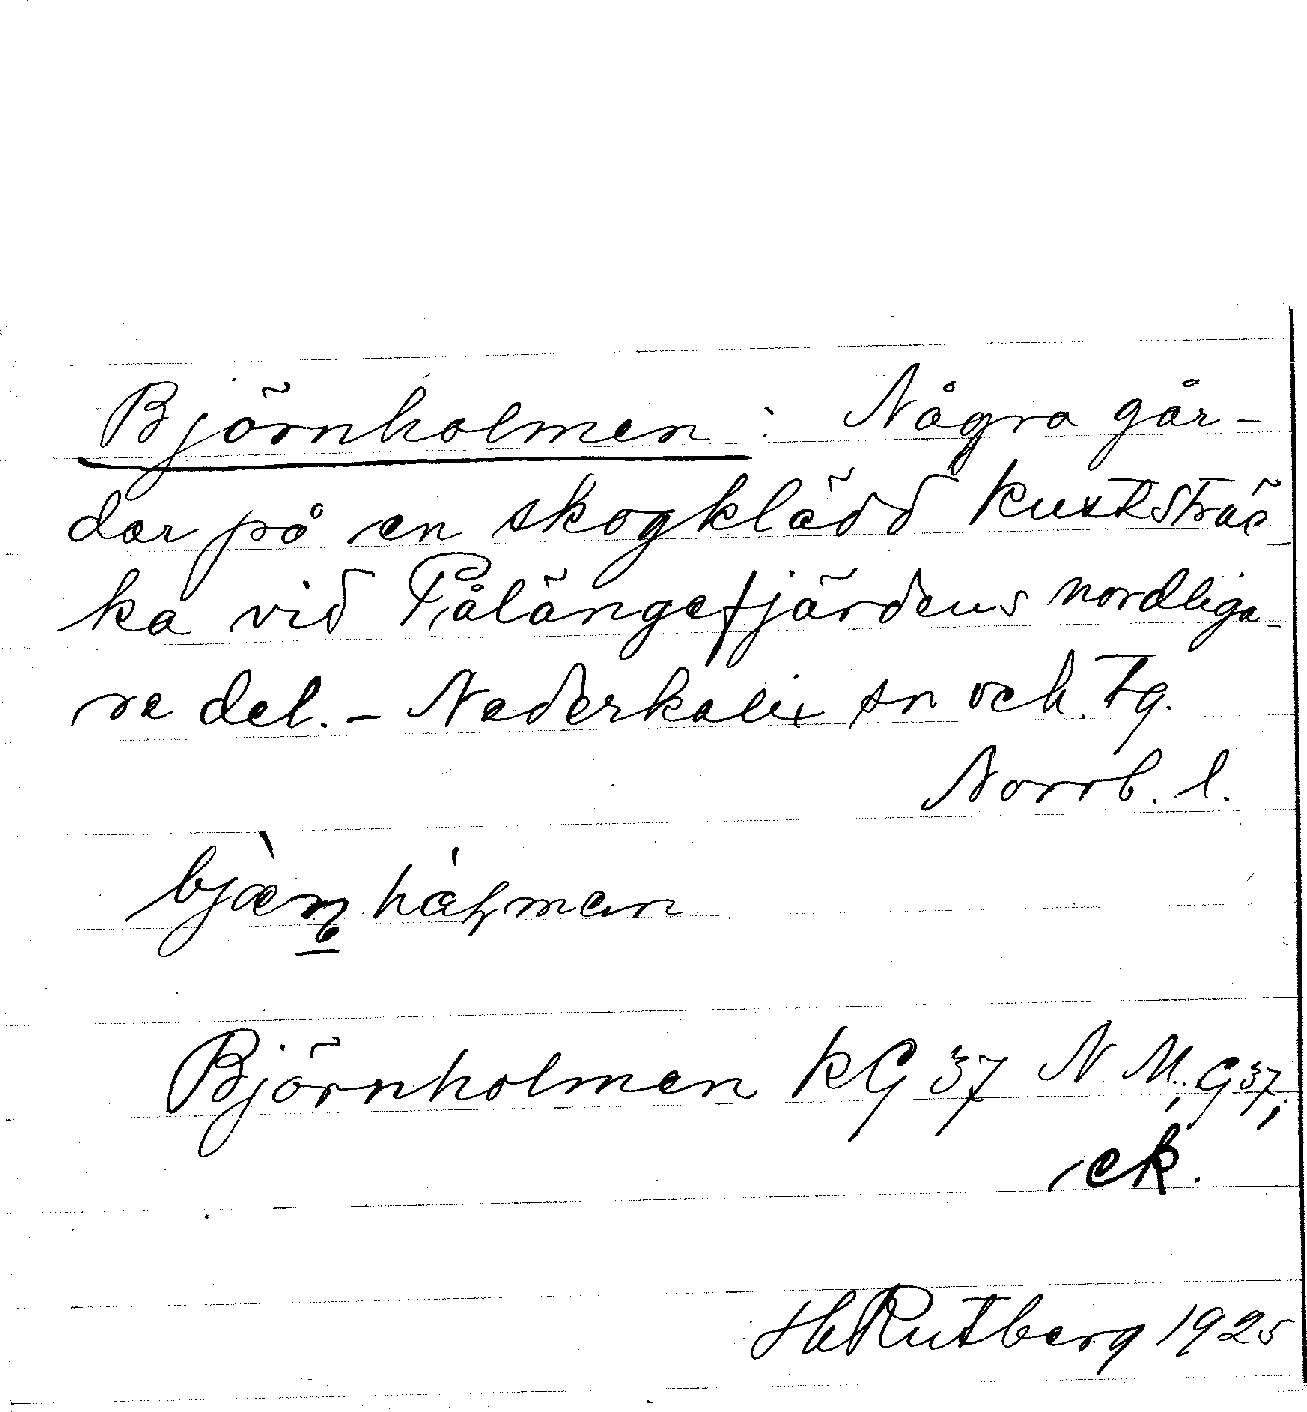 Björnholmen: Några går-
dar på en skogklädd kuststräc-
ka vid Pålängefjärdens nordliga-
re del. - Nederkalix sn och tg.
Norrb. l.
Björnholmen KG 37 N M, G 37;
ek.
H Rutberg 1925